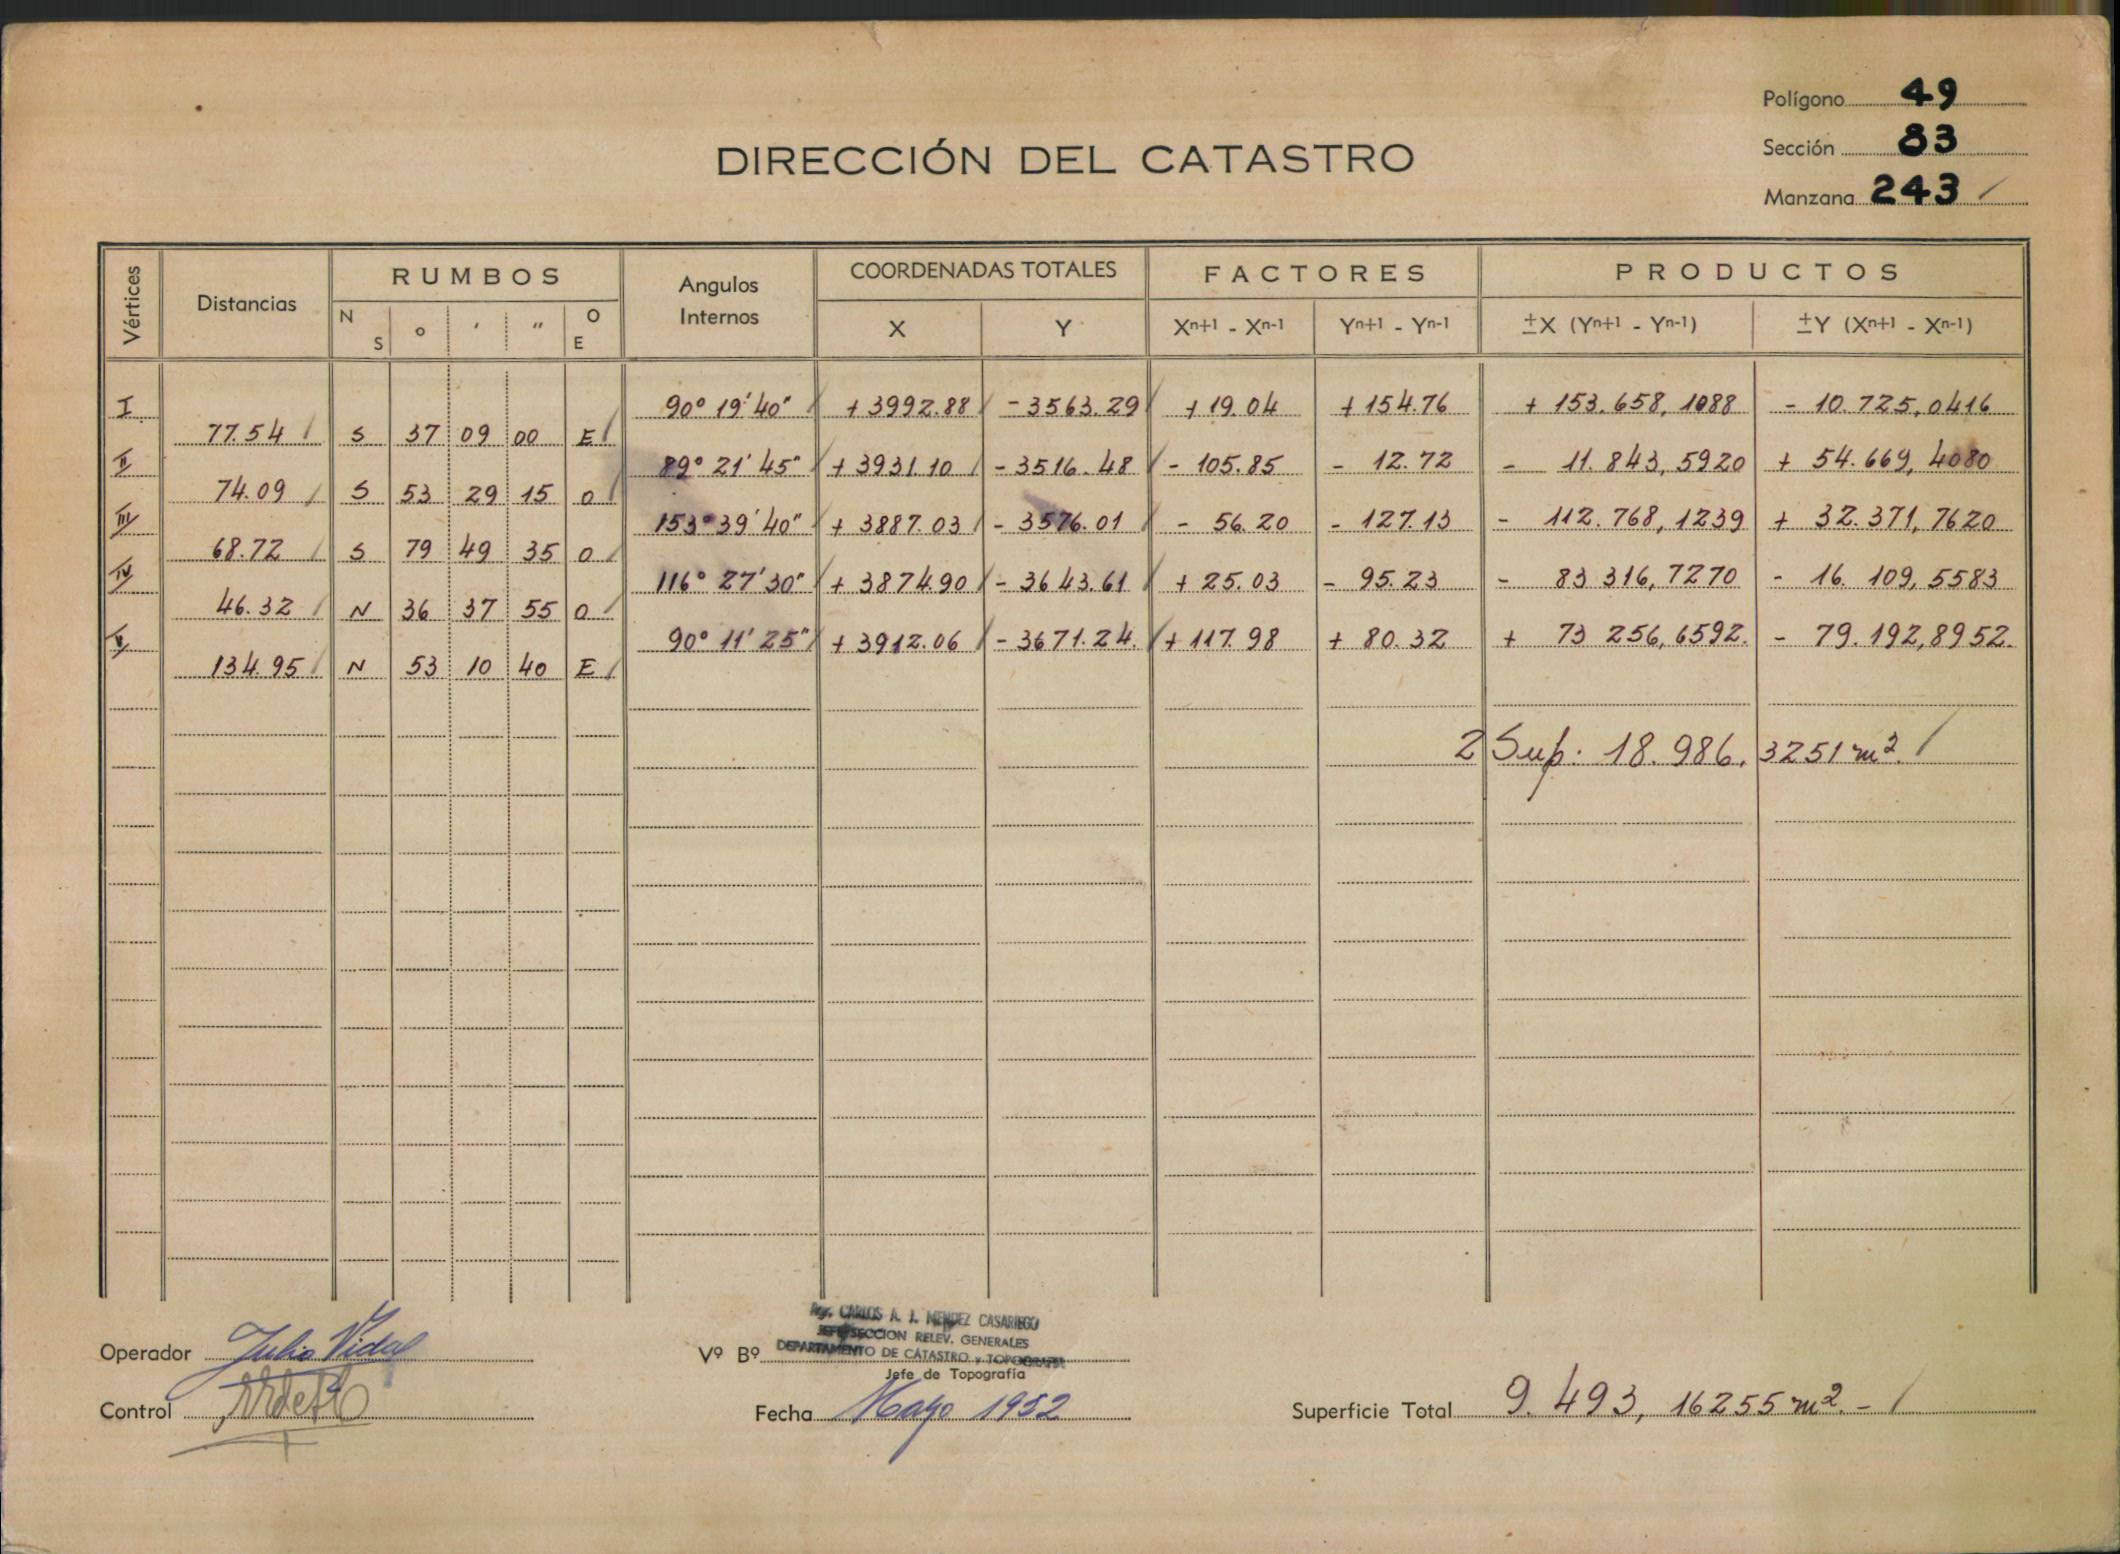 Polígono 49
Sección 83
Manzana 243
DIRECCIÓN DEL CATASTRO
Vértices Distancias RUMBOS Angulos Internos COORDENADAS TOTALES FACTORES PRODUCTOS
N S ° ' " O E X Y Xn+1 - Xn-1 Yn+1 - Yn-1 ±X (Yn+1 - Yn-1) ±Y (Xn+1 - Xn-1)
I 90° 19' 40" + 3992.88 - 3563.29 + 19.04 + 154.76 + 153.658,1088 - 10.725,0416
77.54 S 37 09 00 E
II 89° 21' 45" + 3931.10 - 3516.48 - 105.85 - 12.72 - 11.843,5920 + 54.669,4080
74.09 S 53 29 15 O
III 153° 39' 40" + 3887.03 - 3576.01 - 56.20 - 127.13 - 112.768,1239 + 32.371,7620
68.72 S 79 49 35 O
IV 116° 27' 30" + 3874.90 - 3643.61 + 25.03 - 95.23 - 83 316,7270 - 16.109,5583
46.32 N 36 37 55 O
V 90° 11' 25" + 3912.06 - 3671.24. + 117.98 + 80.32 + 73 256,6592. - 79.192,8952.
134.95 N 53 10 40 E
2 Sup: 18.986,3251 m².
Agr. CARLOS A. J. MENDEZ CASARIEGO
JEFE SECCION RELEV. GENERALES
DEPARTAMENTO DE CATASTRO y TOPOGRAFIA
Operador Julio Vidal Vº Bº
Jefe de Topografía
Control Fecha Mayo 1952 Superficie Total 9.493,16255 m².-